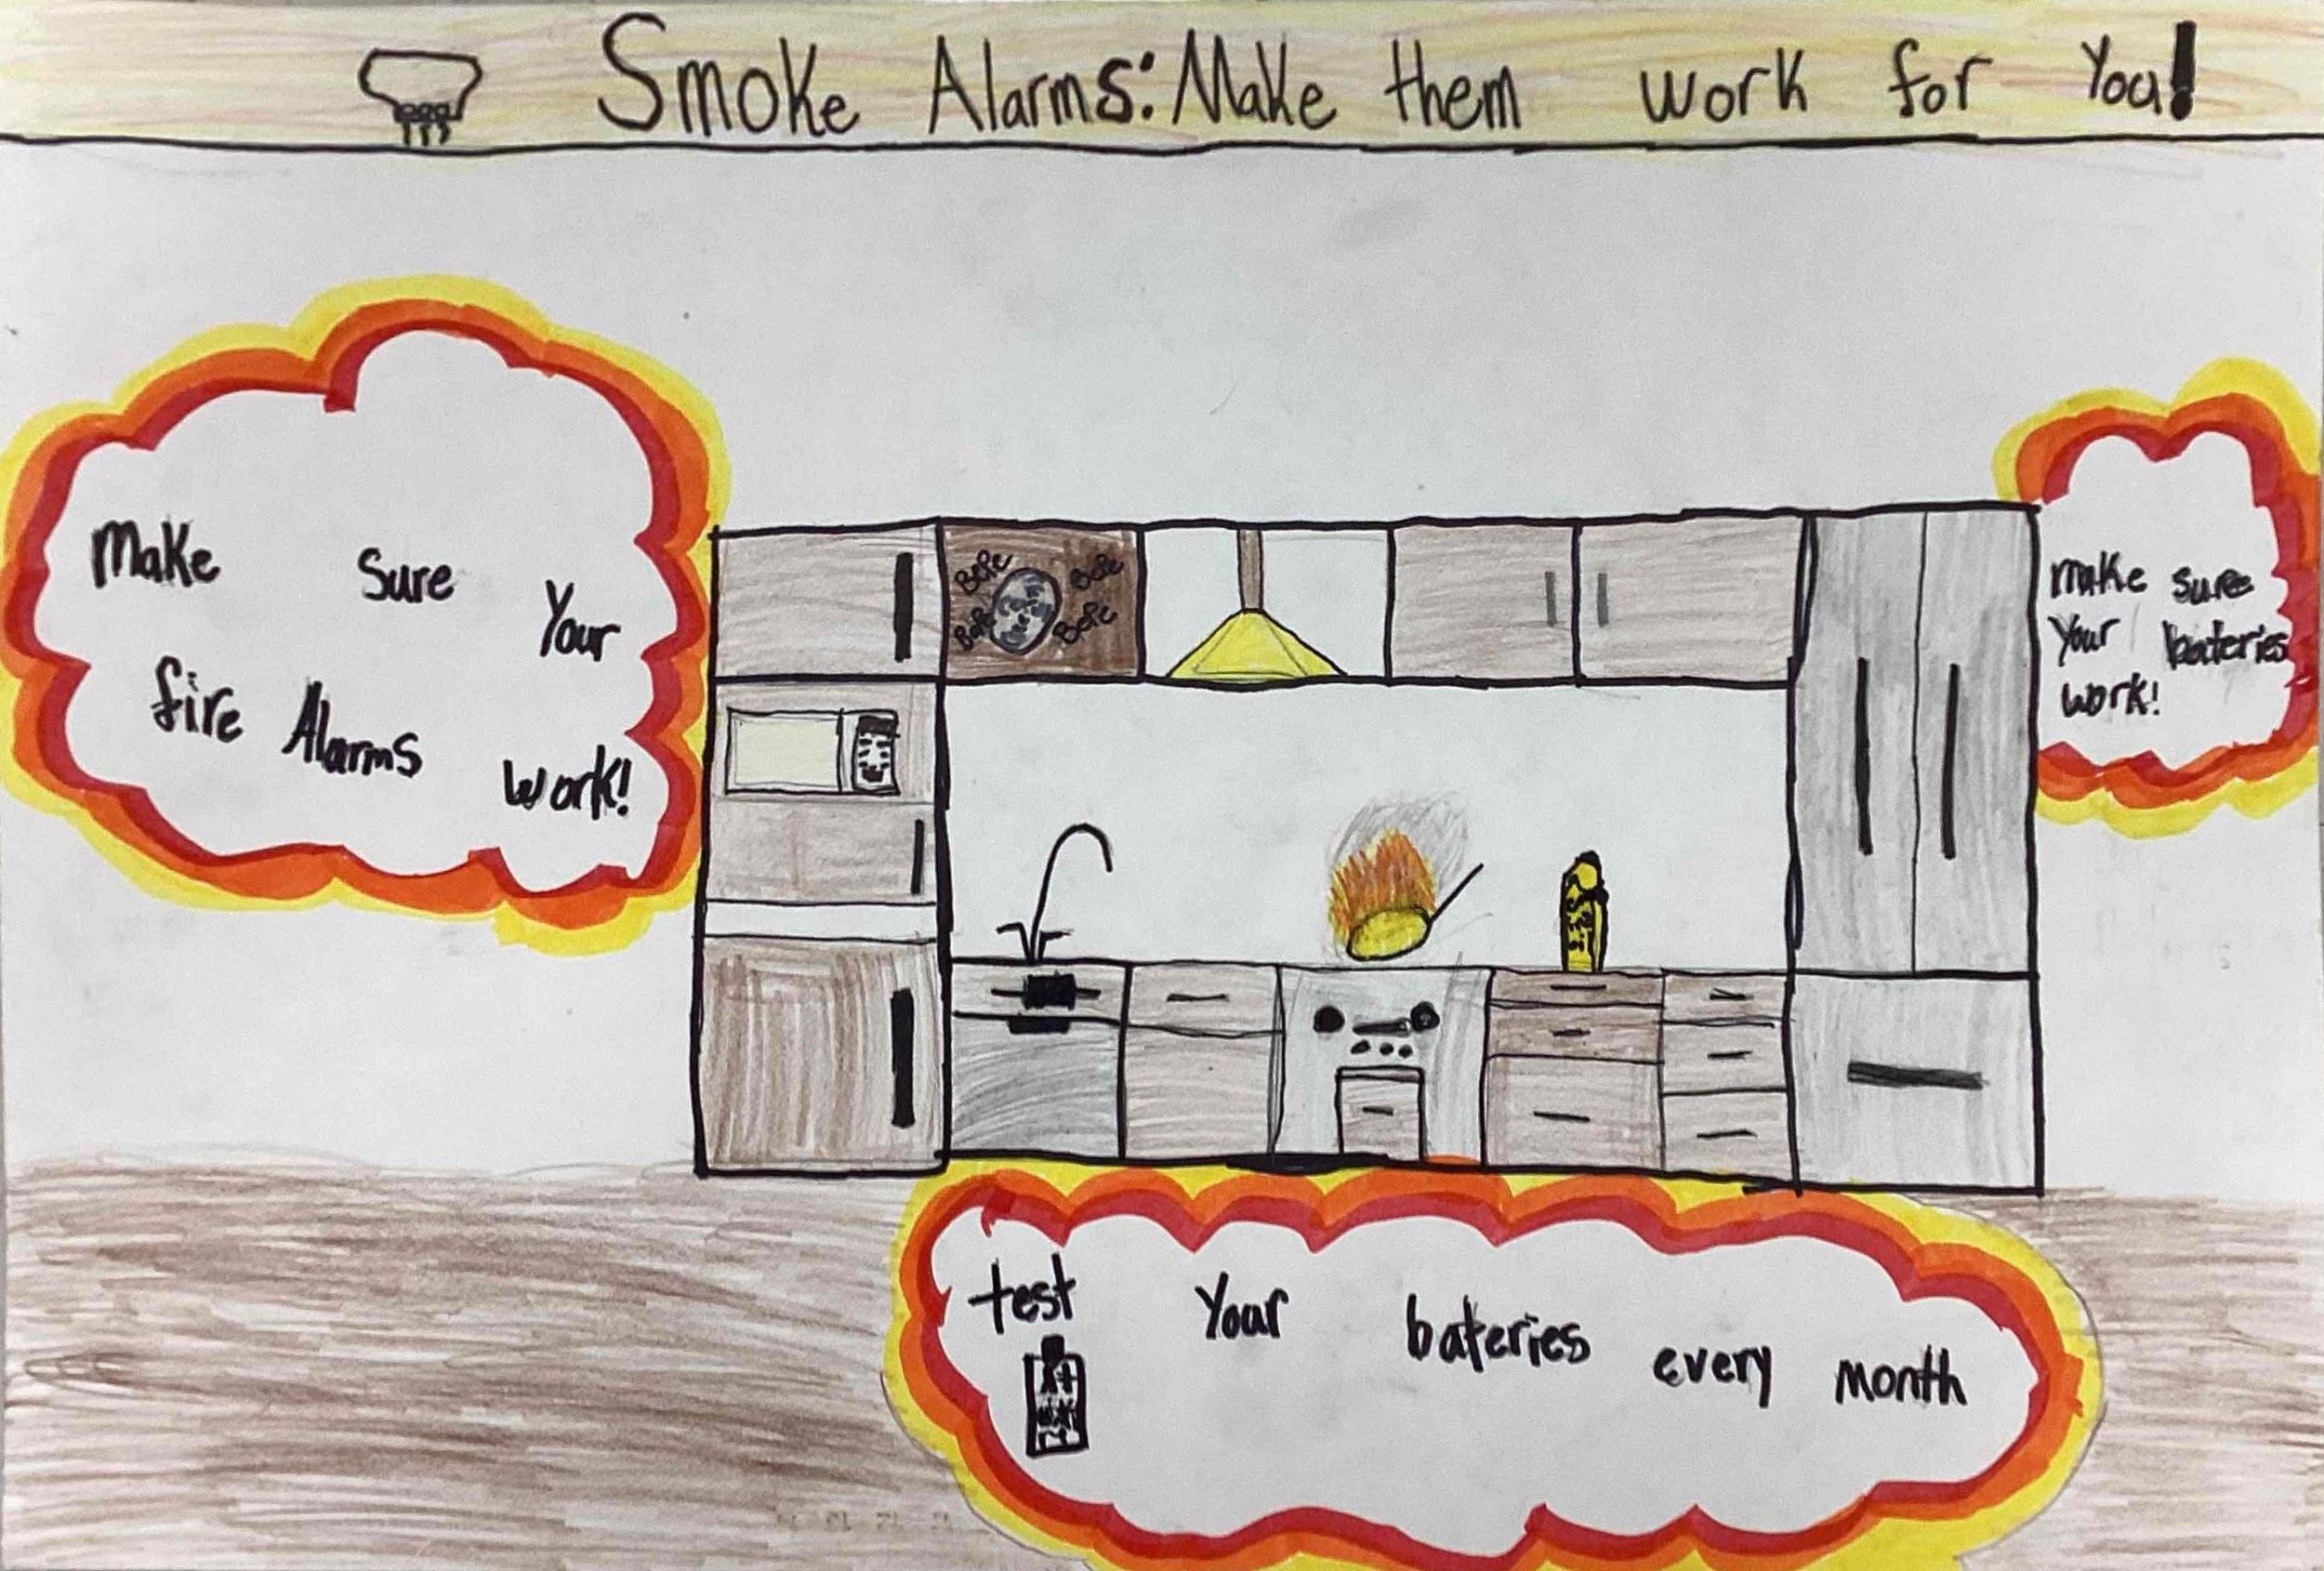 Smoke Alarms: Make them work for You!
Make sure Your
fire Alarms work!
make sure
Your bateries
work!
test Your bateries every month